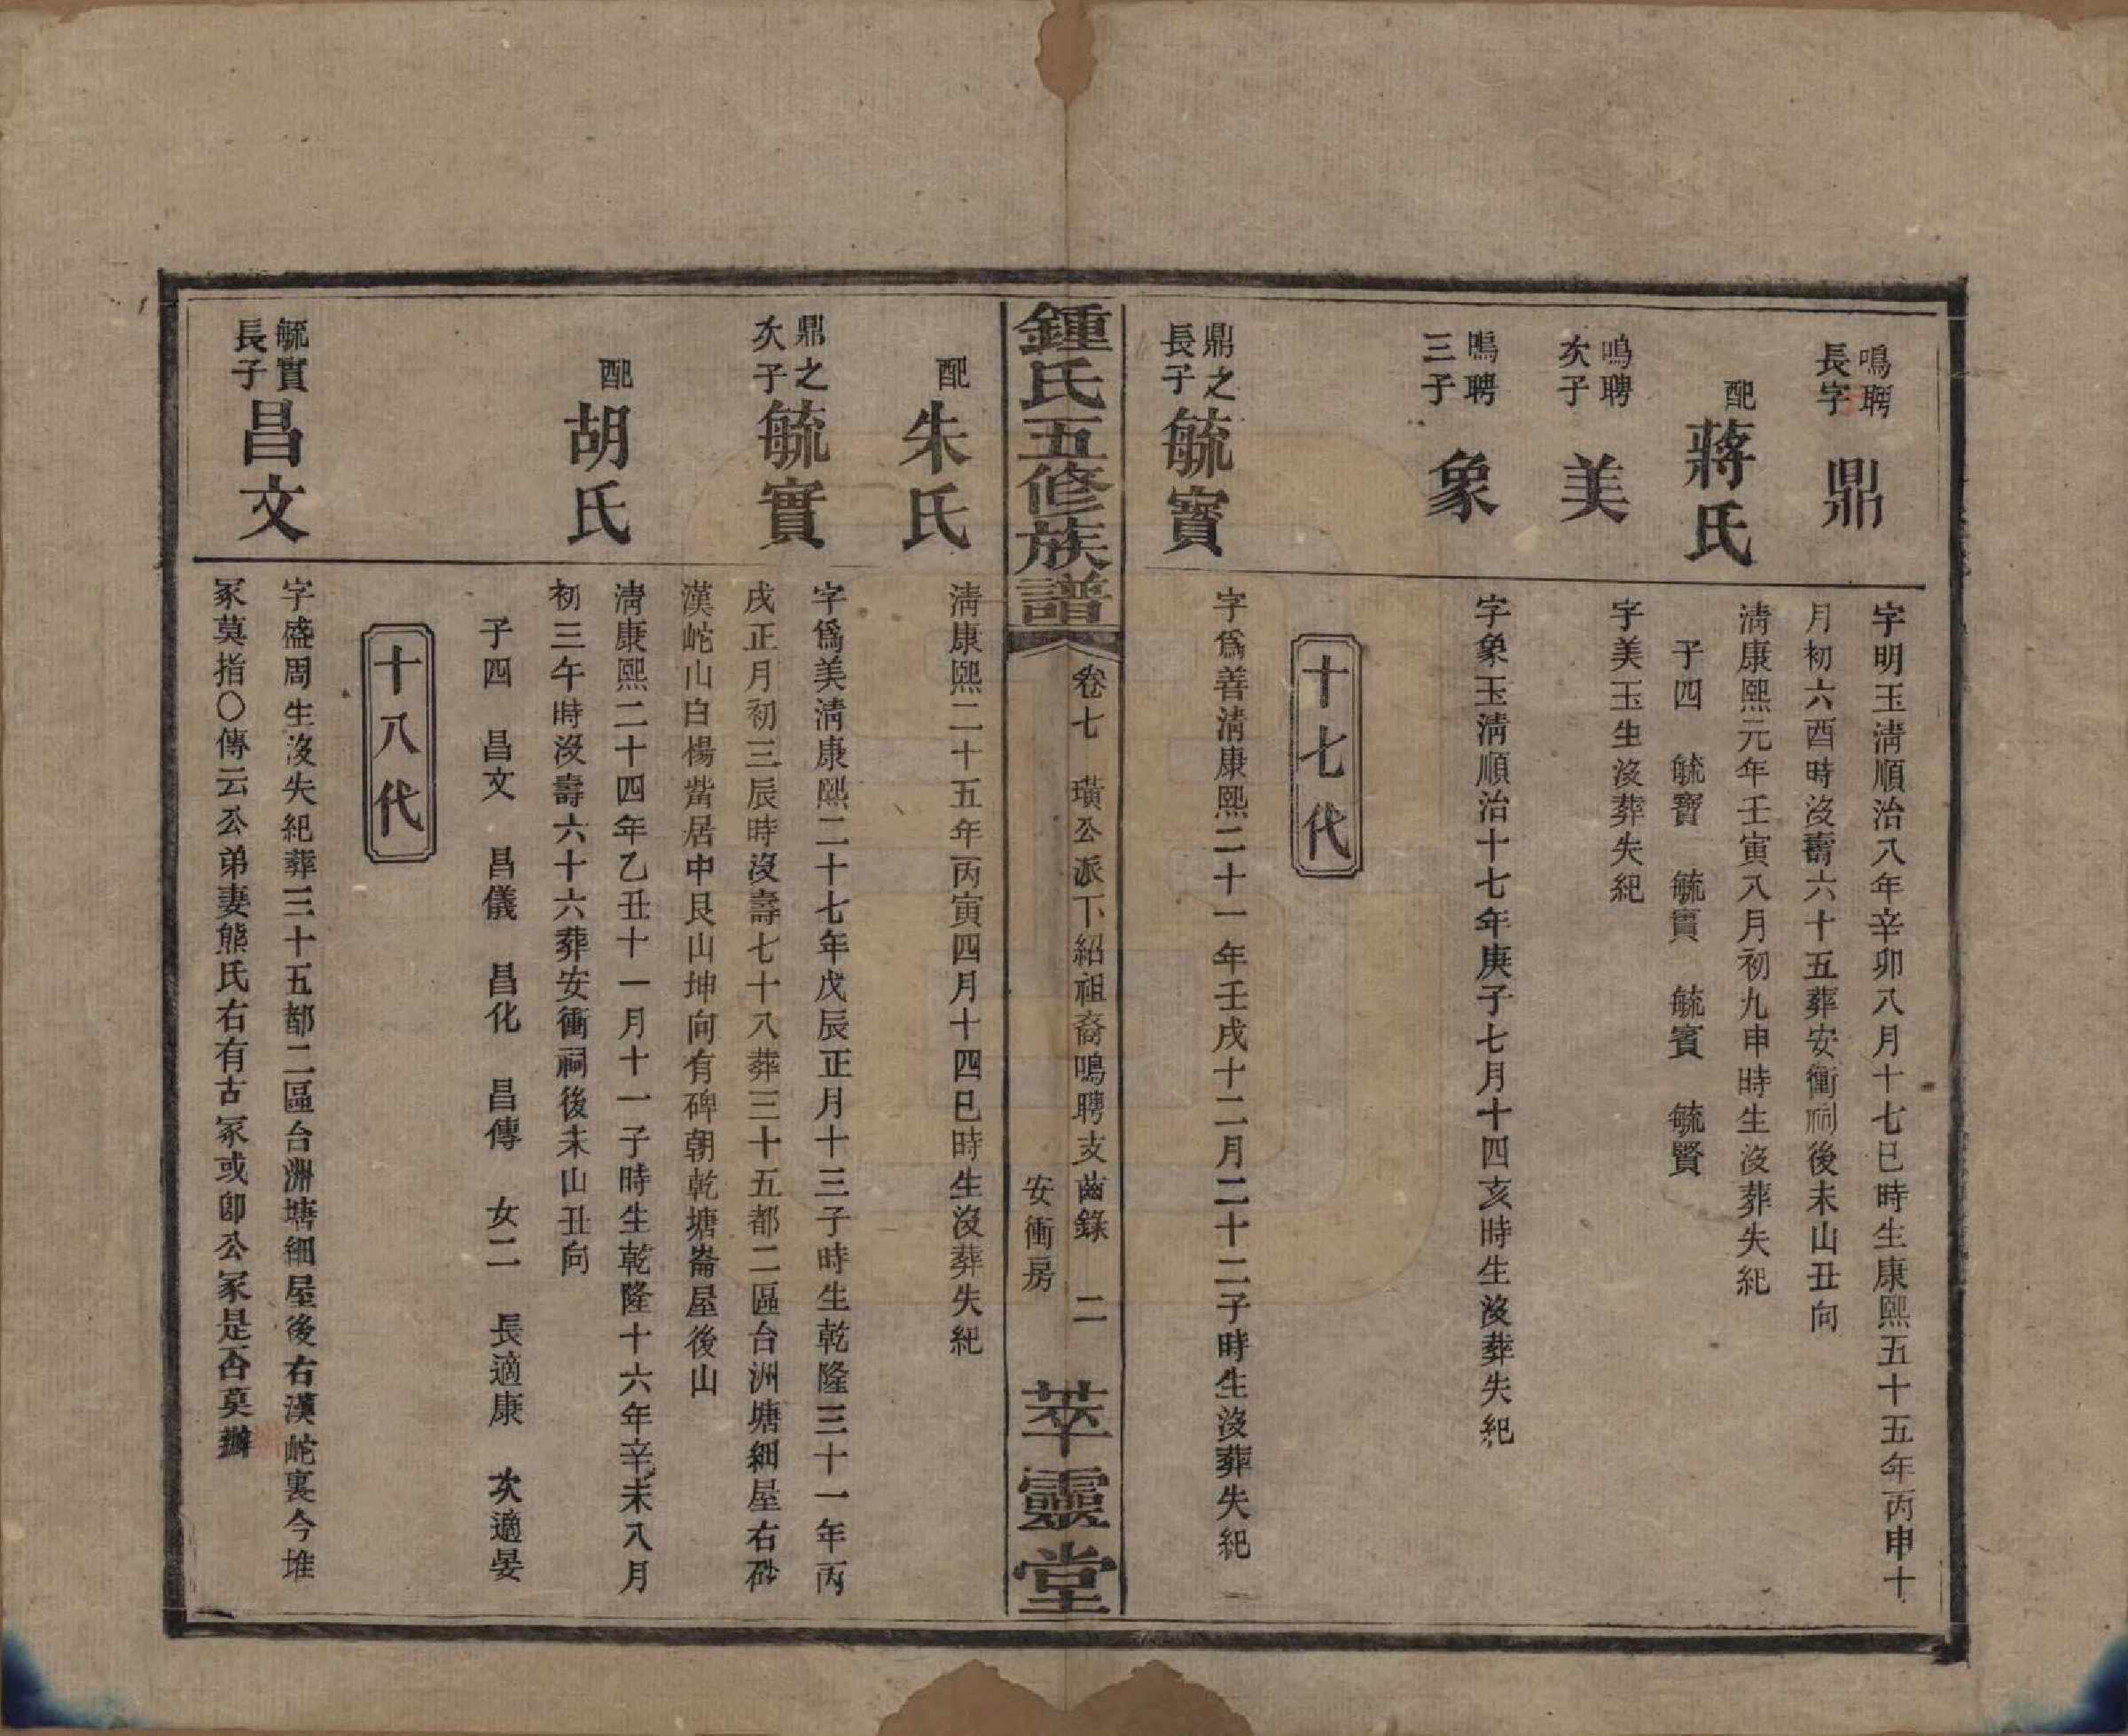 鳴聘
長字
鼎
字明玉淸順治八年辛卯八月十七巳時生康熙五十五年丙申十
月初六酉時沒壽六十五葬安衝祠後未山丑向
配
蔣氏
淸康熙元年壬寅八月初九申時生沒葬失紀
子四 毓寶 毓實 毓賓 毓賢
鳴聘
次子
美
字美玉生沒葬失紀
鳴聘
三子
象
字象玉淸順治十七年庚子七月十四亥時生沒葬失紀
十七代
鼎之
長子
毓寶
字爲善淸康熙二十一年壬戌十二月二十二子時生沒葬失紀
鍾氏五修族譜
卷七 璜公派下紹祖裔鳴聘支齒錄 二
安衝房
萃靈堂
配
朱氏
淸康熙二十五年丙寅四月十四巳時生沒葬失紀
鼎之
次子
毓實
字爲美淸康熙二十七年戊辰正月十三子時生乾隆三十一年丙
戌正月初三辰時沒壽七十八葬三十五都二區台洲塘細屋右砂
漢岮山白楊觜居中艮山坤向有碑朝乾塘崙屋後山
配
胡氏
淸康熙二十四年乙丑十一月十一子時生乾隆十六年辛未八月
初三午時沒壽六十六葬安衝祠後未山丑向
子四 昌文 昌儀 昌化 昌傳 女二 長適康 次適晏
十八代
毓實
長子
昌文
字盛周生沒失紀葬三十五都二區台洲塘細屋後右漢岮裏今堆
冢莫指〇傳云公弟妻熊氏右有古冢或卽公冢是否莫辦